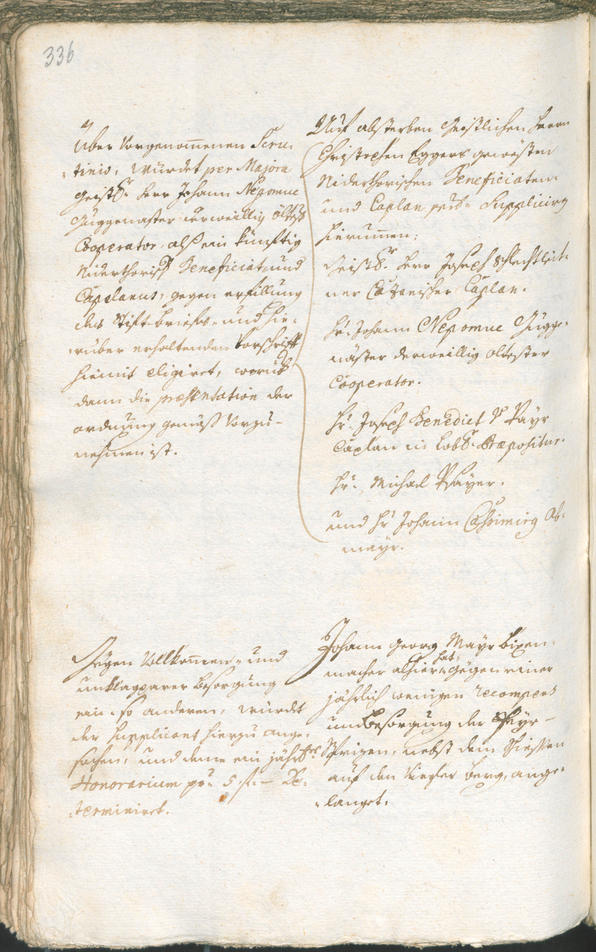 336
Über Vorgenommenen Scru-
tinio, würdet per Majora
Geistl. Herr Johann Nepomuc
Guggenaster derweillig ältest
Cooperator, alß ein künftig
Niderthorisch Beneficiat und
Capelanus, gegen erfillung
des Stift-briefes- und hie-
rüber erhaltenden Vorschrift
hiemit eligiret, worauf
dann die præsentation der
ordnung gemäß Vorzu-
nehmen ist.
Auf absterben Geistlichen Herrn
Christophen Eggers gewesten
Niderthorischen Beneficiaten
und Caplan, Suppliciren
hierummen:
Geistl. Herr Joseph
Caplan.
Hr. Johann Nepomuc Gugge-
naster derweillig ältester
Cooperator.
Hr. Joseph Benedict Payr
Caplan in Præpositur.
Hr. Michael Payer.
und Hr Johann Casimirg Ob-
mayr.
Gegen Vollkommen- und
unklagparer besorgung
ein- so anderen, würdet
der Supplicant hierzu ange-
sehen, und deme ein jährl.
Honorarium per 5 f. - De-
terminiret.
Johann Georg Mayr bixen-
macher alhier hat gegen einer
jährlich wenigen recompens
umb besorgung der Feyr-
Sprizen, nebst dem Schiessen
auf den berg, ange-
langet.